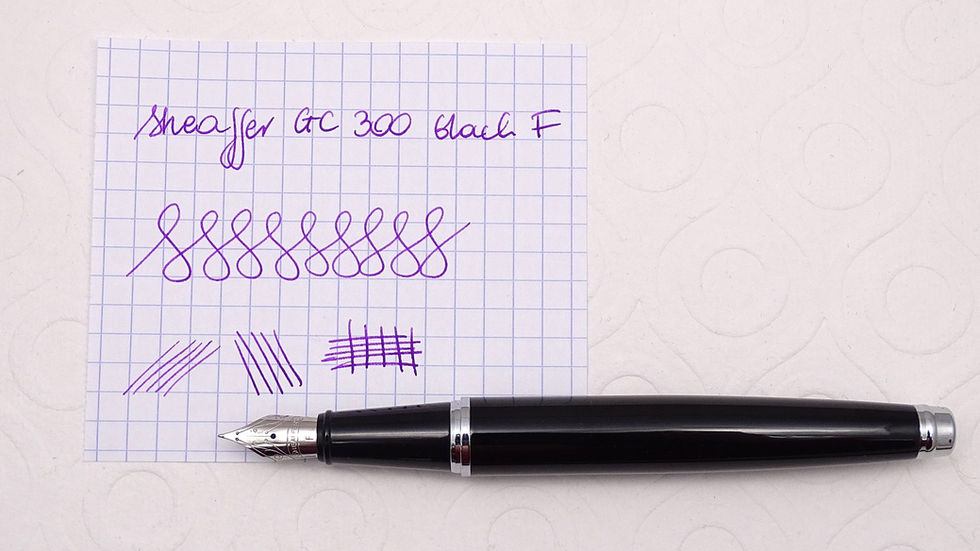 Sheaffer GC 300 black F